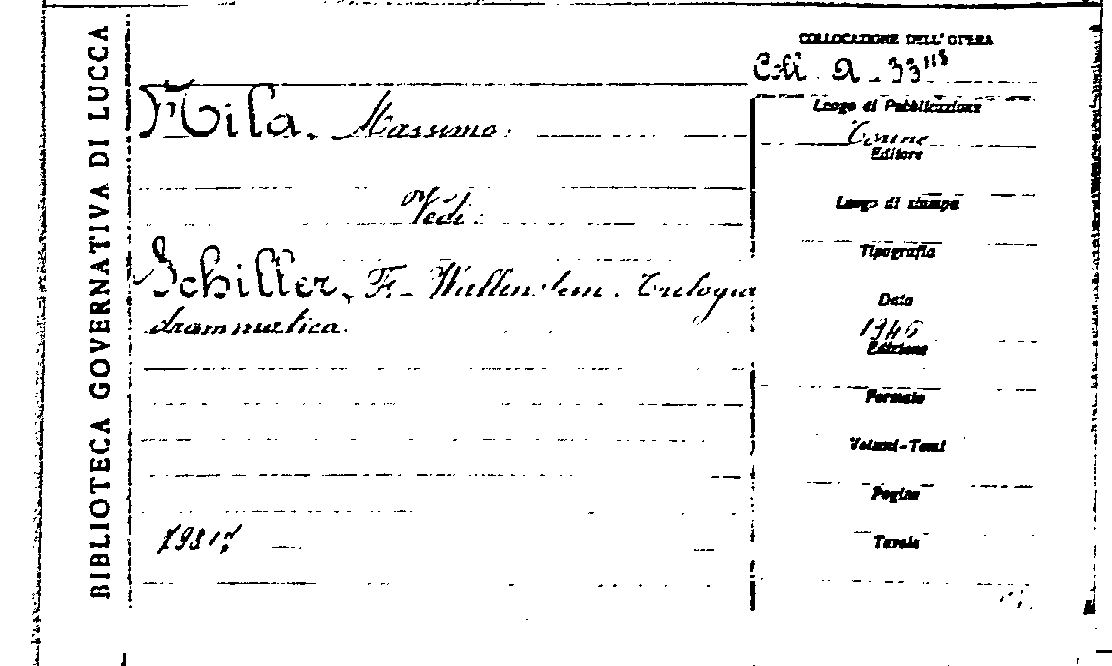 BIBLIOTECA GOVERNATIVA DI LUCCA
COLLOCAZIONE DELL' OPERA
Coll. A. 33 118
Mila, Massimo.
Luogo di Pubblicazione
Torino
Editore
Vedi:
Luogo di stampa
Tipografia
Schiller, F. Wallenstein. Trilogia
drammatica.
Data
Edizione
Formato
Volumi-Tomi
Pagine
Tavole